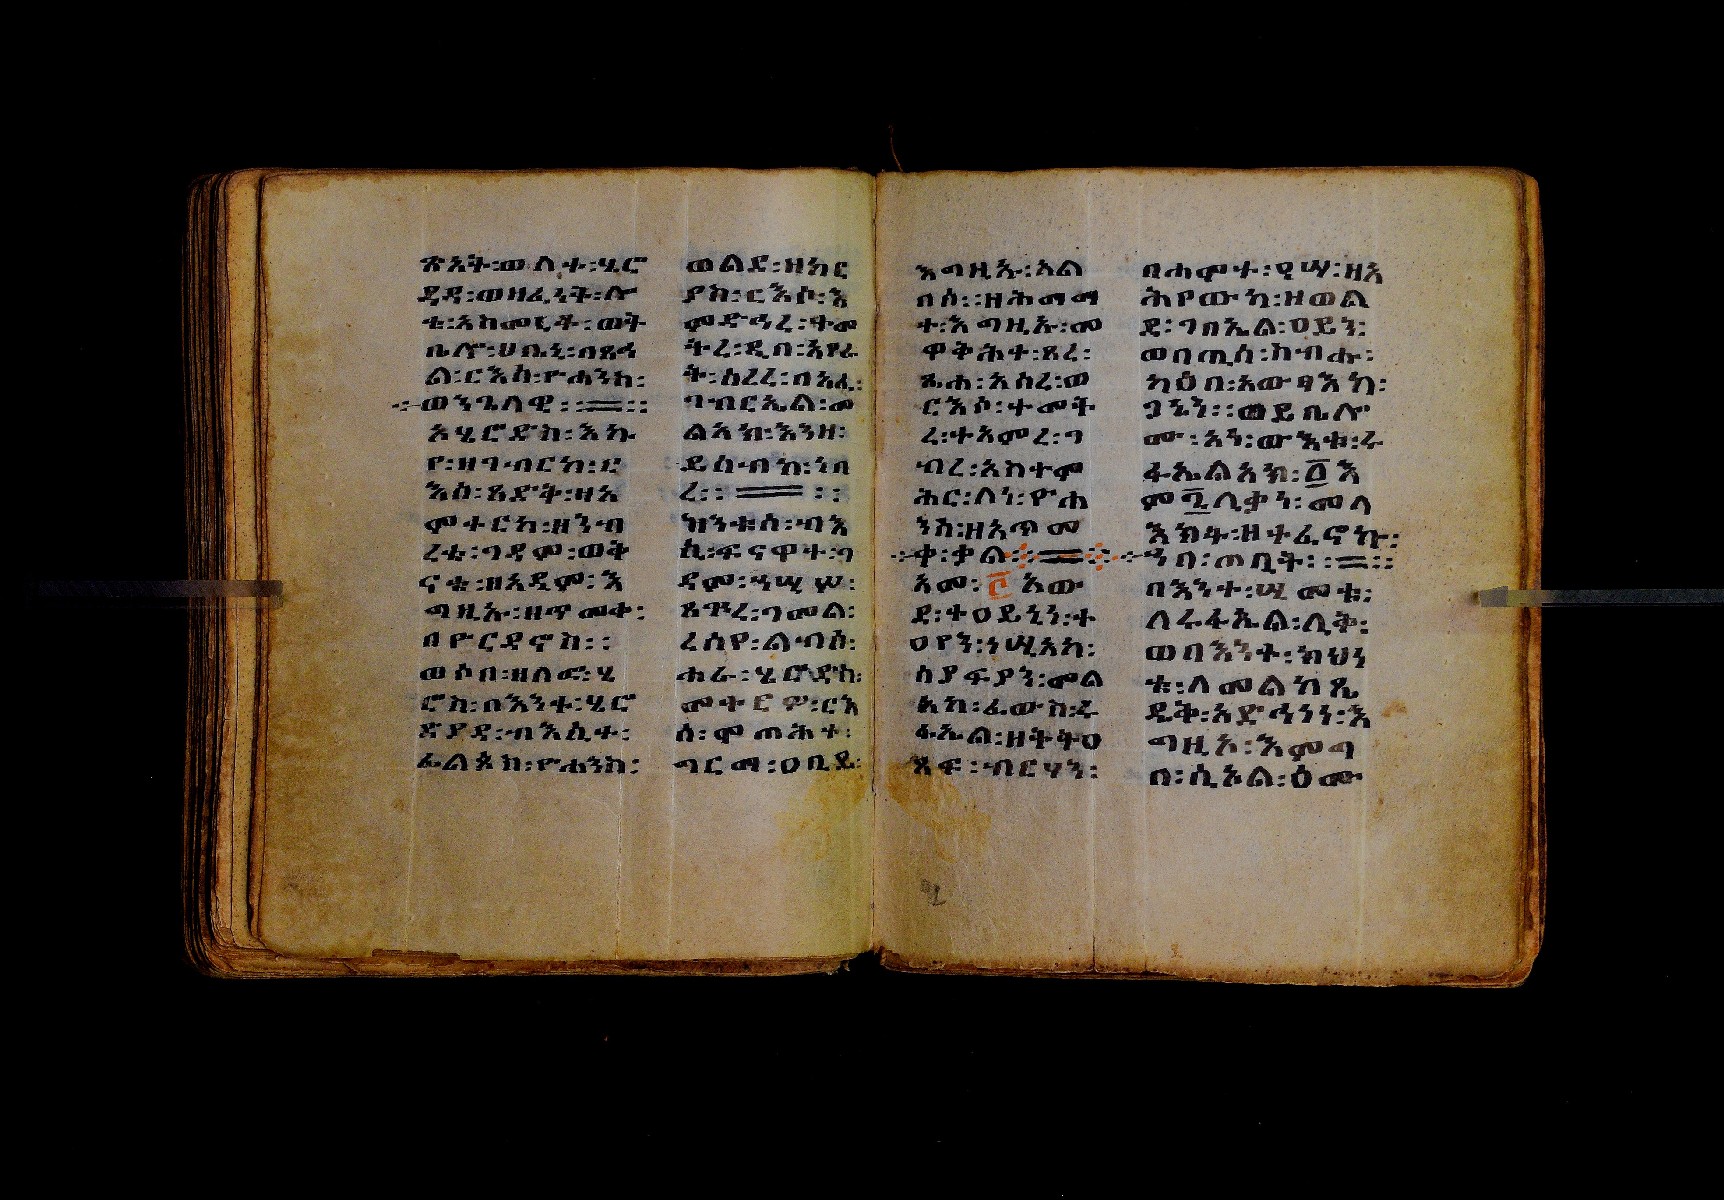 ጽአት፡ወለተ፡ሄሮ
ድያዳ፡ወዘፈነት፡ሎ
ቱ፡አስመደት፡ወት
ቤሎ፡ሀበኒ፡በጻሕ
ል፡ርእሰ፡ዮሐንስ፡
ወንጌላዊ፡፡፡፡
አሄሮድስ፡እኩ
የ፡ዘገብርከ፡ር
እሰ፡ጻድቅ፡ዘአ
ምተርከ፡ዘንብ
ረቱ፡ገዳም፡ወቅ
ናቱ፡ዘአዲም፡እ
ግዚኡ፡ዘጥመቀ፡
በዮርዳኖስ፡፡
ወሶበ፡ዘለፎ፡ሄ
ሮስ፡በእንተ፡ሄሮ
ድያዳ፡ብእሲተ፡
ፊልጶስ፡ዮሐንስ፡
ወልደ፡ዘካር
ያስ፡ርእሶ፡እ
ምድኅረ፡ቀመ
ትረ፡ዲበ፡እየራ
ት፡ሰረረ፡በአፈ፡
ገብርኤል፡መ
ልአክ፡እንዘ፡
ይሰብክ፡ነበ
ረ፡፡፡፡
ክንቱሰ፡ብእ
ሲ፡ፍናዋተ፡ገ
ዳም፡ኀሠሠ፡
ጸጕረ፡ገመል፡
ረሰየ፡ልብሰ፡
ሐራ፡ሄሮዳስ፡
መተርዎ፡ርእ
ሰ፡ሞጠሕተ፡
ግርማ፡ዐቢይ፡
እግዚኡ፡አል
በሰ፡፡ዘሕማማ
ተ፡እግዚኡ፡መ
ዋቅሕተ፡ጸረ፡
ጼሐ፡አሰረ፡ወ
ርእሶ፡ተመት
ረ፡ተአምረ፡ገ
ብረ፡አስተም
ሕር፡ለነ፡ዮሐ
ንስ፡ዘአጥመ
ቀ፡ቃል፡፡፡
አመ፡፫አው
ደ፡ተዐይንነ፡ተ
ዐየን፡ነሢአከ፡
ሰያፍያን፡መል
አከ፡ፈውስ፡ሩ
ፋኤል፡ዘትትዐ
ጸፍ፡ብርሃን፡
በሐሞተ፡፩ሣ፡ዘአ
ሕየውከ፡ዘወል
ደ፡ገበኤል፡ዐይን፡
ወበጢሰ፡ከብዱ፡
ካዕበ፡አውፃእከ፡
ጋኔን፡፡ወይቤሎ
ሙ፡አነ፡ውእቱ፡ሩ
ፋኤልአክ፡፩እ
ም፯ሊቃነ፡መላ
እክት፡ዘተፈኖኩ፡
ኀበ፡ጦቢት፡፡፡፡
በእንተ፡ሢመቱ፡
ለሩፋኤል፡ሊቅ፡
ወበእንተ፡ክህነ
ቱ፡ለመልከጼ
ዴቅ፡አድኅነነ፡እ
ግዚኦ፡እምግ
በ፡ሲኦል፡ዕሙ